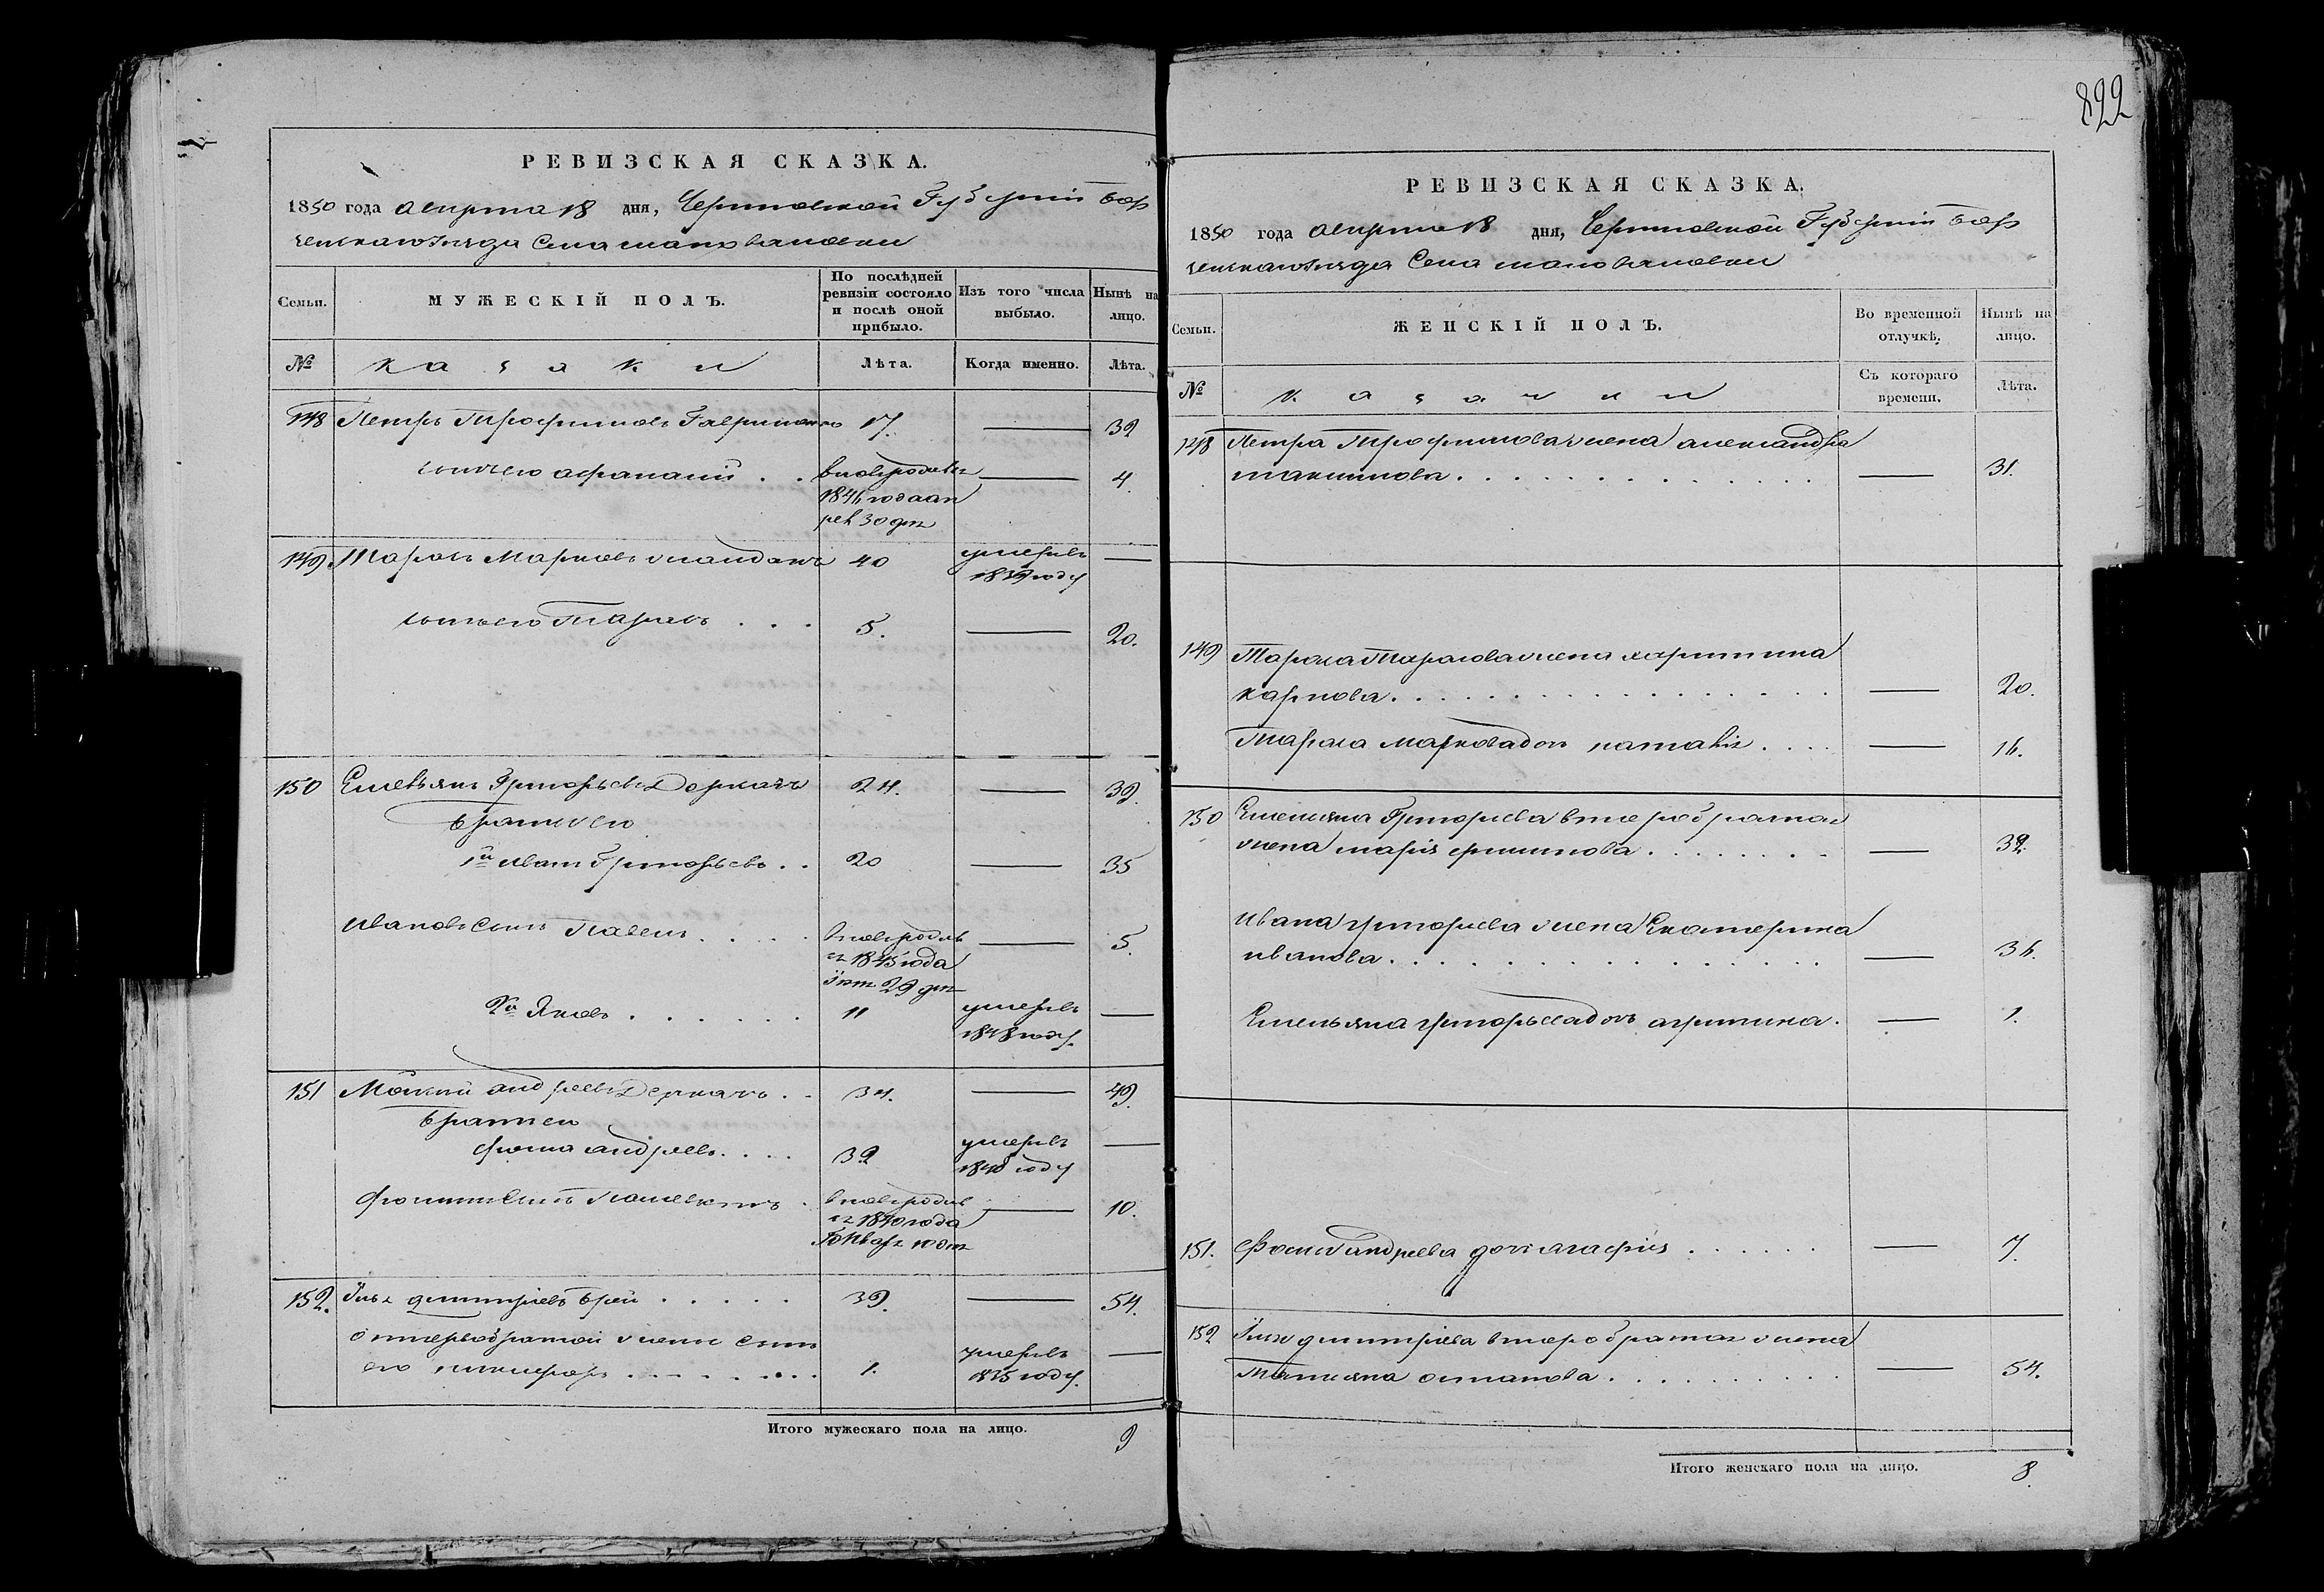 892
РЕВИЗСКАЯ СКАЗКА.
1850 года августа 18 дня, Черниговской Губерніи Бор
зенскаго Уезда Села
Семьи.
МУЖЕСКІЙ ПОЛЪ.
По послѣдней ревизіи состояло и послѣ оной прибыло.
Изъ того числа выбыло.
Нынѣ на лицо.
№
казаки
Лѣта.
Когда именно.
Лѣта.
148 Петръ Трофимовъ 17. — 32
сынъ его афанасій . . вновь родивъ — 4.
1846 года ап
рел 30 дня
149 Тарасъ Марковъ 40 умеръ —
1839 году
сынъ его Тарасъ . . . 5. — 20.
150 Емельянъ Григорьевъ Деркачъ 24. — 39.
братья его
1й иванъ Григорьевъ . . 20 — 35
ивановъ сынъ Павелъ . . . . вновь родив — 5.
ся 1845 года
29 дня
2й Яковъ . . . . . . 11 умеръ —
1848 году.
151 Мокій андреевъ Деркачъ . . 34. — 49.
братъ его
фома андреевъ . . . . 32 умеръ —
1840 году
фоминъ сынъ . вновь родив — 10.
ся 1840 года
Январ 10 дня
152. Илья дмитріевъ . . . . . 39. — 54.
отъ первобрачной жены сынъ
его никифоръ . . . . . . . . 1. умеръ —
1835 году.
Итого мужескаго пола на лицо. 9
РЕВИЗСКАЯ СКАЗКА.
1850 года августа 18 дня, Черниговской Губерніи Бор
зенскаго Уезда Села
Семьи.
ЖЕНСКІЙ ПОЛЪ.
Во временной отлучкѣ.
Нынѣ на лицо.
№
казачки
Съ котораго времени.
Лѣта.
148 Петра Трофимова жена александра
максимова . . . . . . . . . . . . . — 31.
149 Тараса Тарасова жена харитина
карпова . . . . . . . . . . . . . . . . — 20.
Тараса Маркова дочь наталія . . . . — 16.
150 Емельяна Григорьева второбрачная
жена марія ефимова . . . . . . . — 39.
ивана григорьева жена Екатерина
иванова . . . . . . . . . . . . . . . — 36.
Емельяна григорьева дочь . — 1.
151. Фомы андреева дочь агафія . . . . . . — 7.
152 Ильи дмитріева второбрачная жена
Татіяна осипова . . . . . . . . . . — 54.
Итого женскаго пола на лицо. 8.